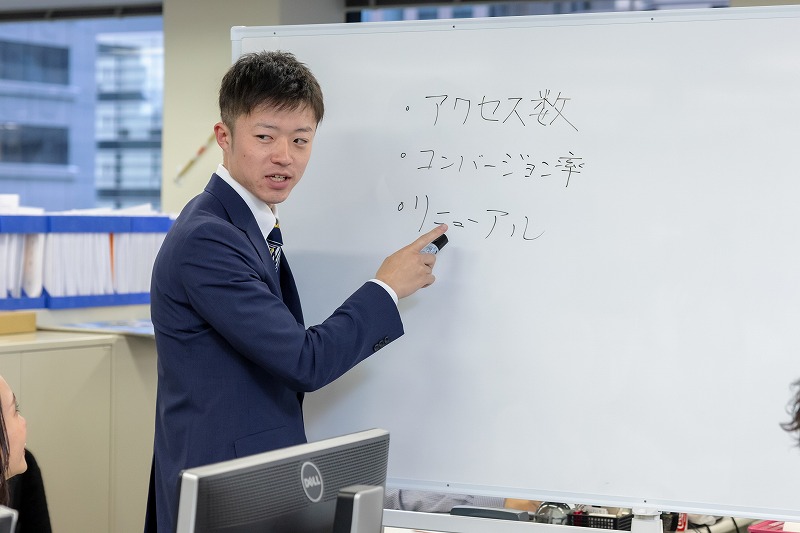 ・アクセス数
・コンバージョン率
・リニューアル
DELL